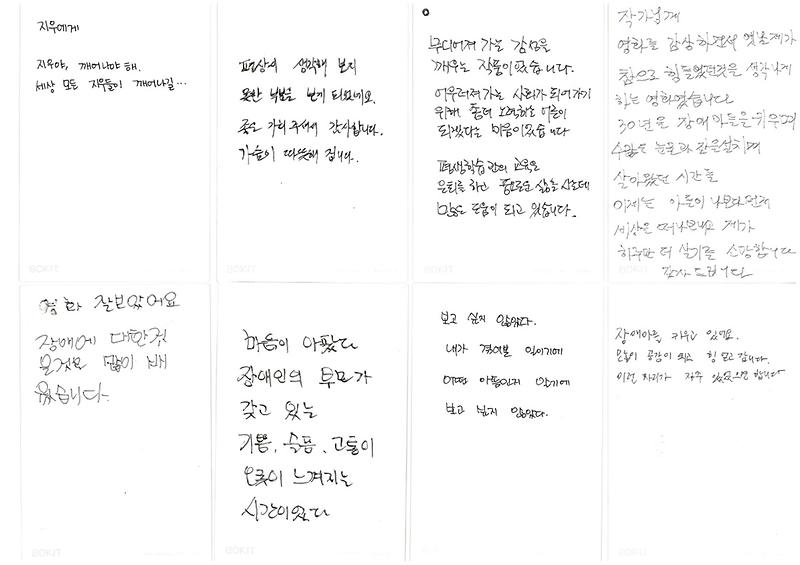 지우에게
지우야, 깨어나야 해.
세상 모든 지우들이 깨어나길...
평상시 생각해 보지
못한 부분을 보게 되었네요.
좋은 자리 주셔서 감사합니다.
가슴이 따뜻해 집니다.
무디어져 가는 감성을
깨우는 작품이였습니다.
어우러져가는 사회가 되어가기
위해 좀더 노력하는 어른이
되겠다는 마음이였습니다
평생학습관의 교육은
은퇴를 하고 풍요로운 삶을 사는데
많은 도움이 되고 있습니다.
작가님께
영화를 감상하면서 옛날제가
참으로 힘들었던것을 생각나게
하는 영화였습니다
30년을 장애 아들을 키우며
수많은 눈물과
살아왔던 시간들
이제는 아들이 나보다먼저
세상을 떠나보내고 제가
하루만 더 살기를 소망합니다
감사 드립니다
영화 잘보았어요
장애에 대한것
모것은 많이 배
웠습니다.
마음이 아팠다
장애인의 부모가
갖고 있는
기쁨, 슬픔, 고통이
오롯이 느껴지는
시간이였다
보고 싶지 않았다.
내가 겪어본 일이기에
어떤 아픔인지 알기에
보고 싶지 않았다.
장애아를 키우고 있어요.
모든것이 공감이 되고 힘 얻고 갑니다.
이런 자리가 자주 있었으면 합니다
BOKIT
BOKIT
BOKIT
BOKIT
BOKIT
BOKIT